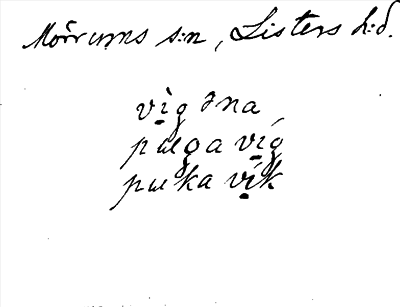 Mörrums s:n, Listers h:d.
vị̀g əna,
pɯga vị́g
pɯka vị́k